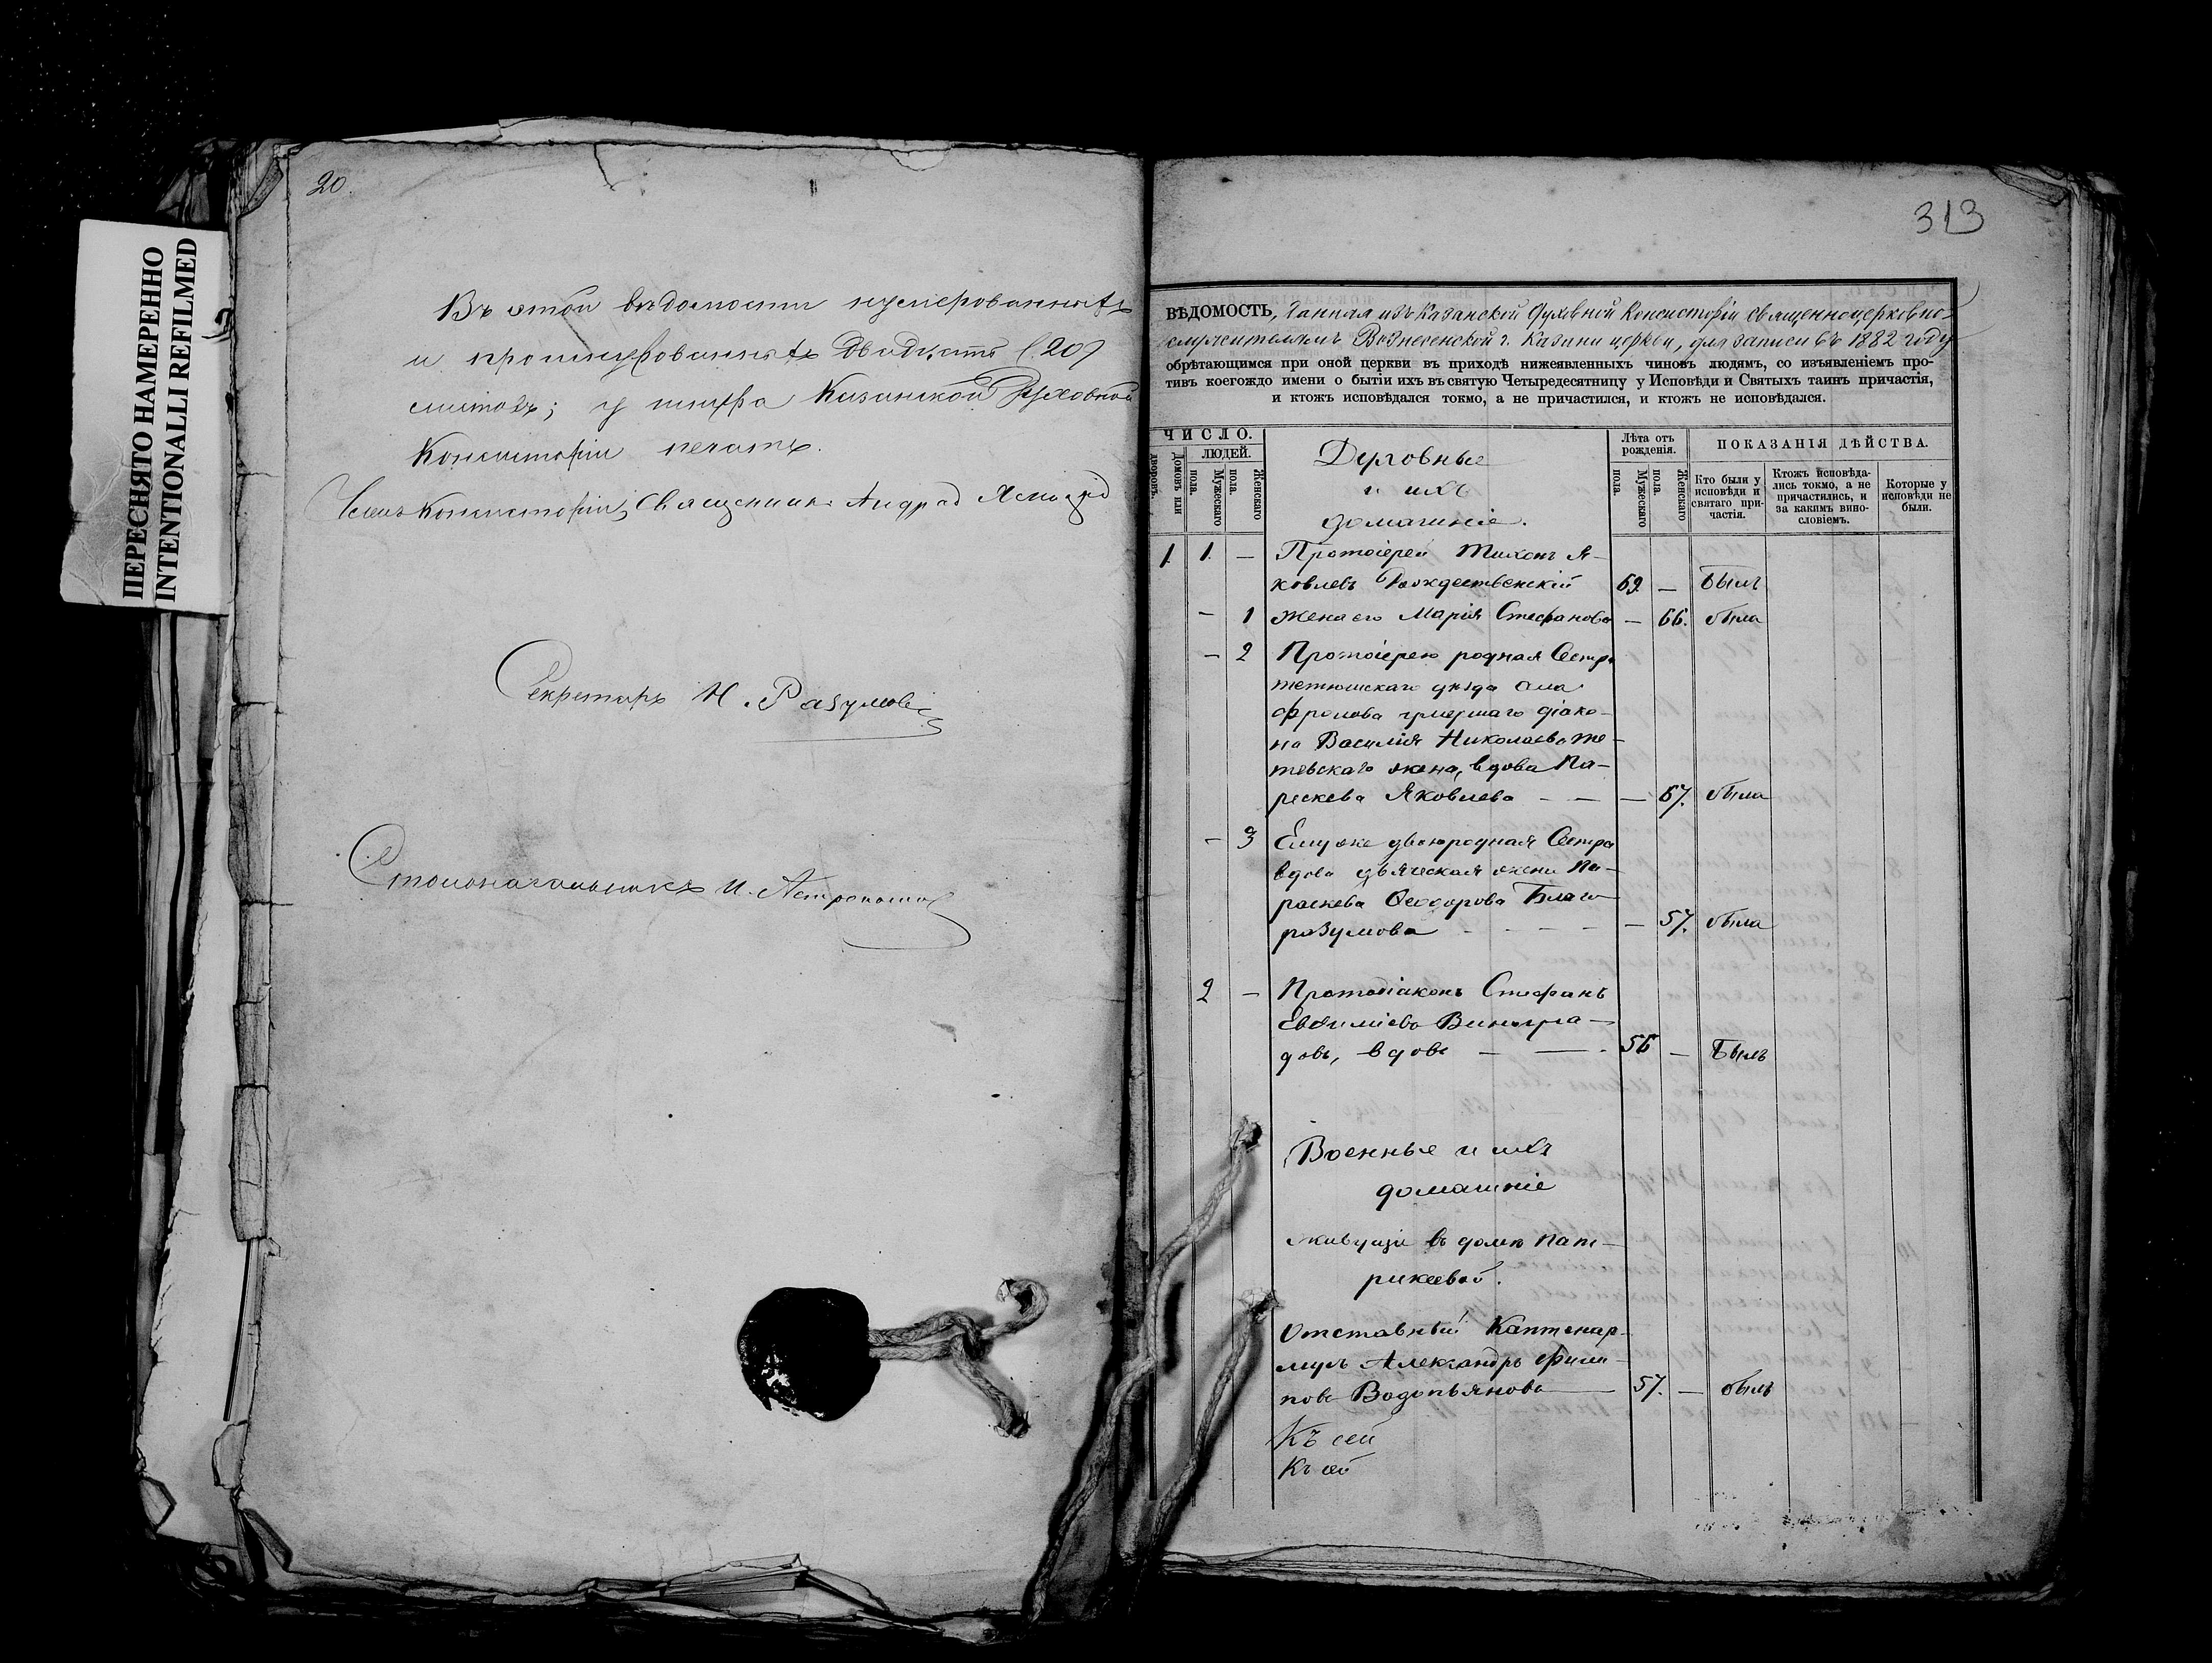 ПЕРЕСНЯТО НАМЕРЕННО
INTENTIONALLI REFILMED
20.
Въ этой вѣдомости нумерованныхъ
и прошнурованныхъ двадцать (20)
листовъ; у шнура Казанской Духовной
Консисторіи печать.
Членъ Консисторіи, Священникъ Андрей
Секретарь Н. Разумовъ
Столоначальникъ И.
313
ВѢДОМОСТЬ, данная изъ Казанской Духовной Консисторіи священноцерковно-
служителямъ Вознесенской г. Казани церкви, для записи въ 1882 году
обрѣтающимся при оной церкви въ приходѣ нижеявленныхъ чиновъ людямъ, со изъявленіемъ про-
тивъ коегождо имени о бытіи ихъ въ святую Четыредесятницу у Исповѣди и Святыхъ таинъ причастія,
и ктожъ исповѣдался токмо, а не причастился, и ктожъ не исповѣдался.
ЧИСЛО.
ЛЮДЕЙ.
Домовъ или дворовъ.
Мужескаго пола.
Женскаго пола.
Духовные
и ихъ
домашніе.
Лѣта отъ рожденія.
Мужескаго пола.
Женскаго пола.
ПОКАЗАНІЯ ДѢЙСТВА.
Кто были у исповѣди и святаго причастія.
Ктожъ исповѣдались токмо, а не причастились, и за какимъ винословіемъ.
Которые у исповѣди не были.
1 1 — Протоіерей Тихонъ Я-
ковлевъ Рождественскій 69. — Былъ
— 1 Жена его Марія Стефанова — 66. была
— 2 Протоіерею родная Сестра
тетюшскаго уѣзда села
Фролова умершаго діако-
на Василія Николаева
жена, вдова Па-
раскева Яковлева — — — 67. была
— 3 Емуже двоюродная Сестра
вдова дьяческая жена Па-
раскева Ѳеодорова Благо-
разумова — 57. была
2 — Протодіаконъ Стефанъ
Евѳиміевъ Виногра-
довъ, вдовъ — — 56 — Былъ
Военные и ихъ
домашніе
живущіе въ домѣ Пат-
рикеевой.
Отставный Каптенар-
мусъ Александръ Филип-
повъ Водопьяновъ — 57. — былъ
Къ сей
Къ сей